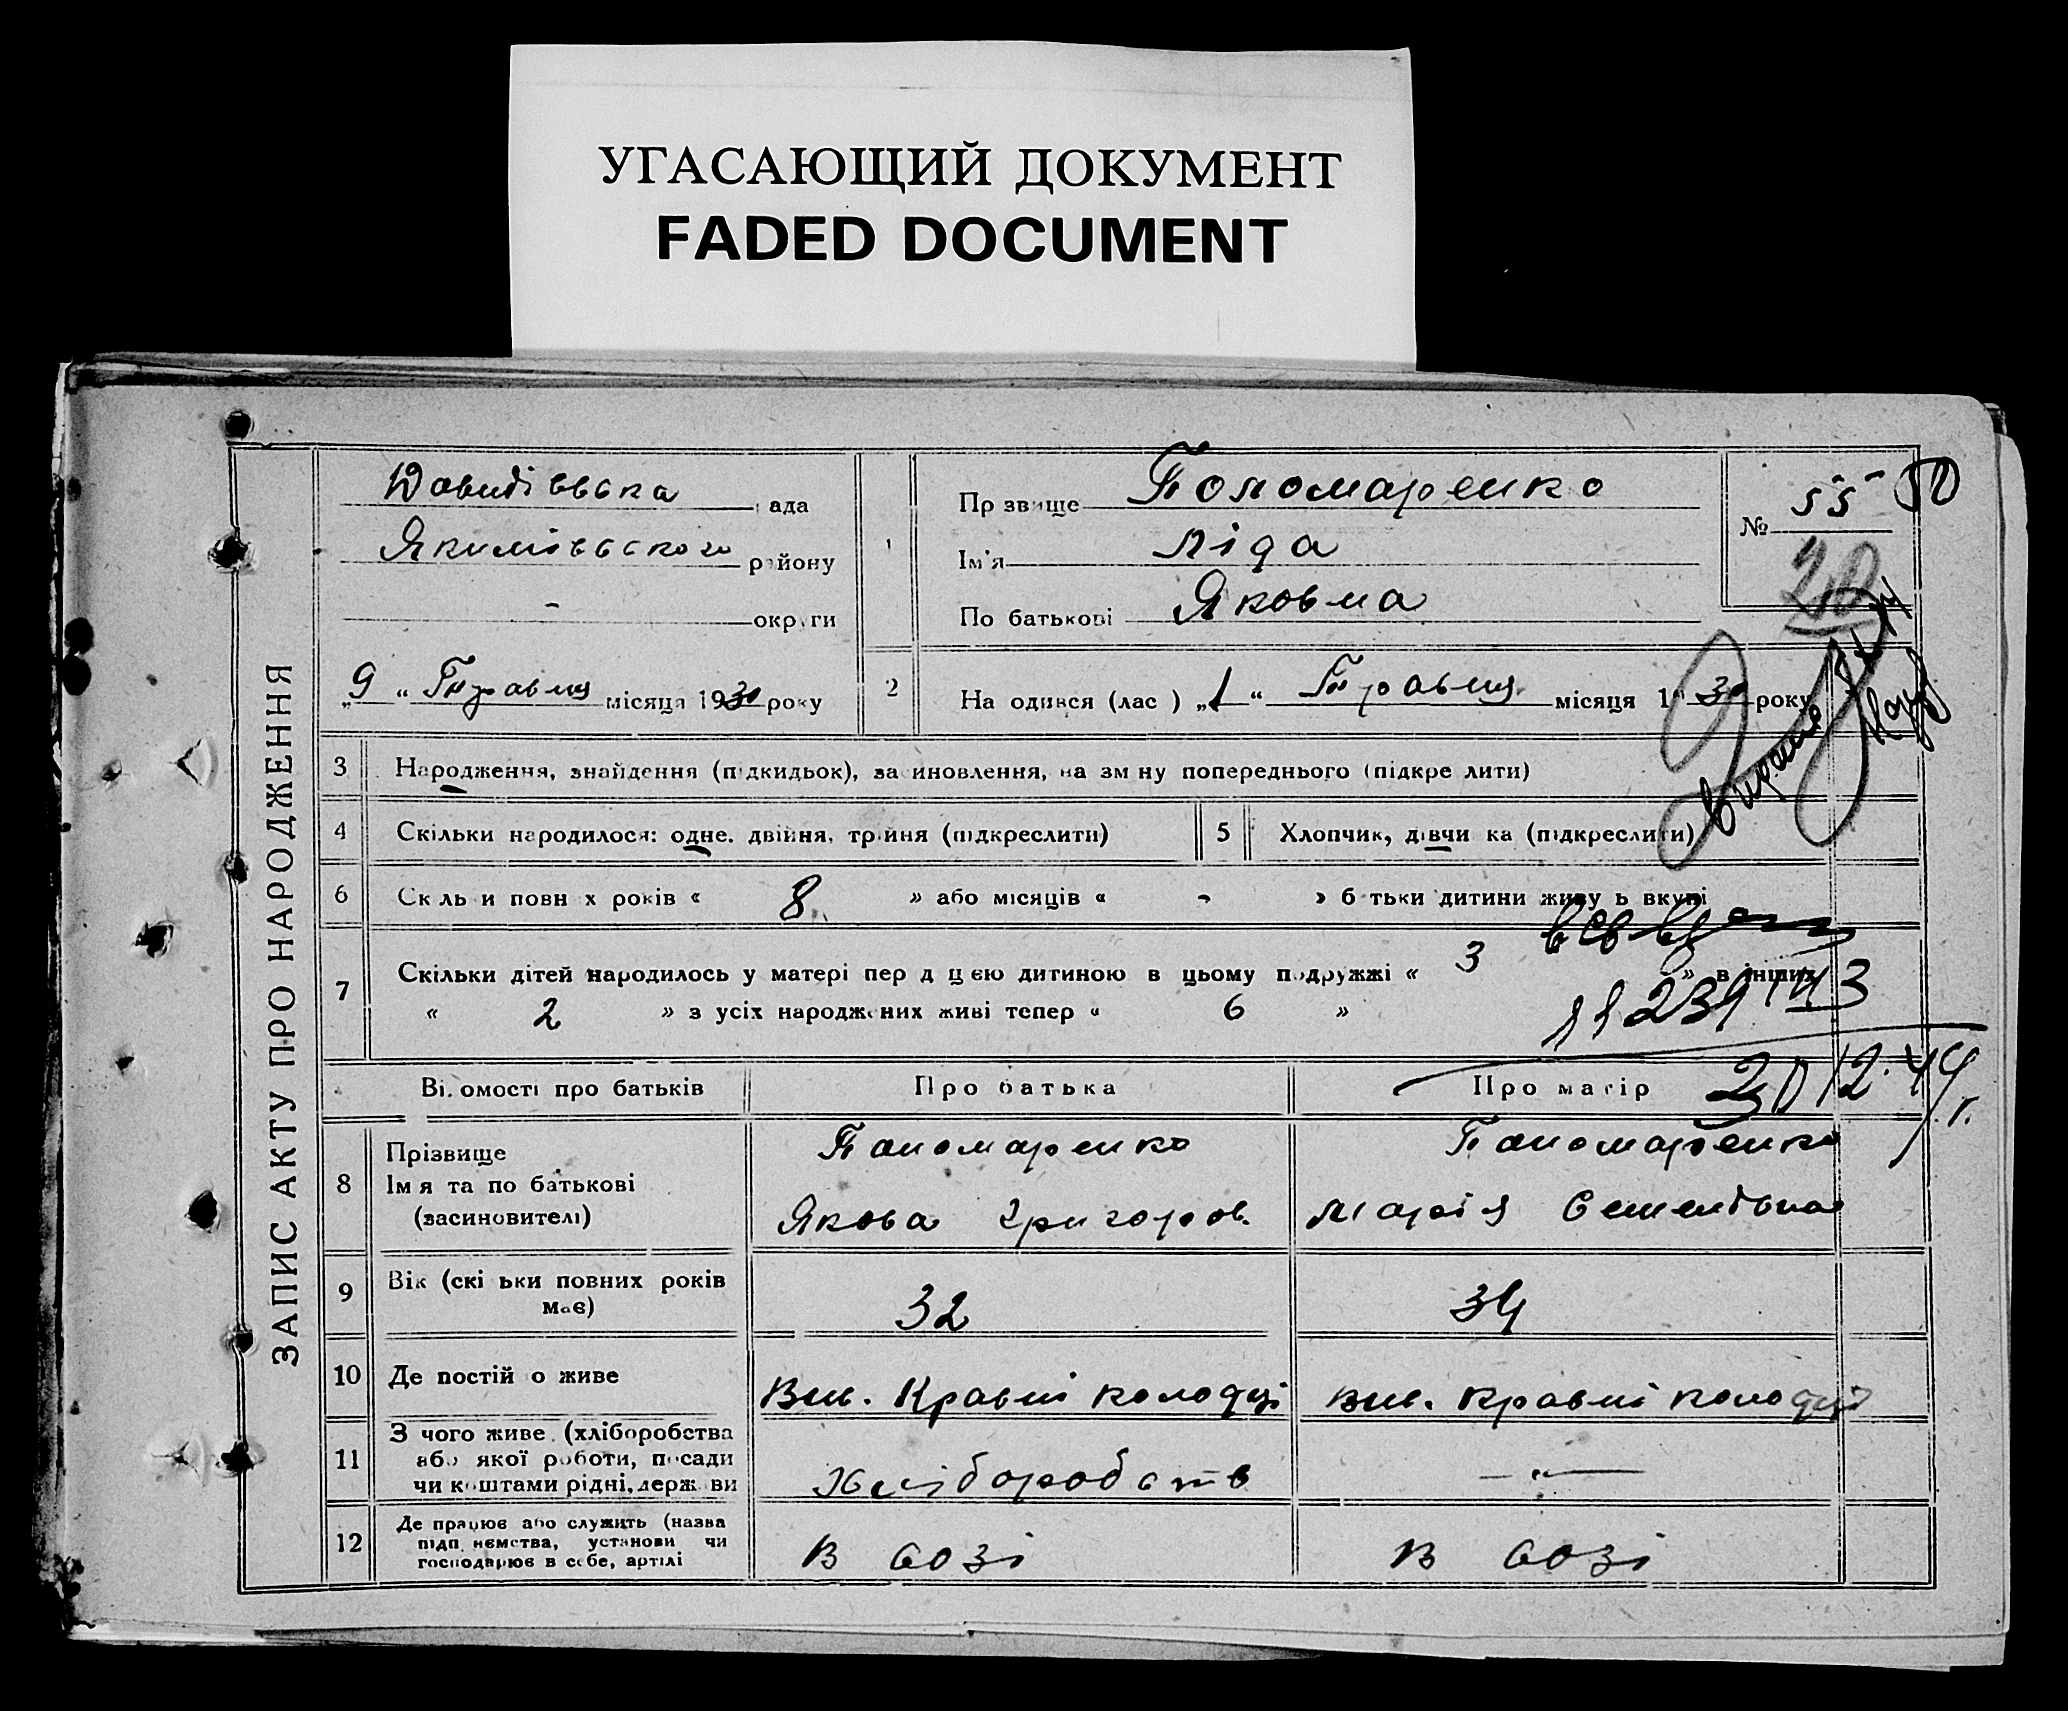 УГАСАЮЩИЙ ДОКУМЕНТ
FADED DOCUMENT
ЗАПИС АКТУ ПРО НАРОДЖЕННЯ
Давидівська ада
Якимівського району
- округи
„9“ Травня місяця 1930 року
1
Пр звище Пономаренко
Ім'я Ліда
По батькові Яковма
№ 55
50
20
2 На одився (лас ) „1“ Травня місяця 1930 року
3 Народження, знайдення (підкидьок), засиновлення, на зм ну попереднього (підкре лити)
4 Скільки народилося: одне, двійня, трійня (підкреслити)
5 Хлопчик, дівчи ка (підкреслити)
6 Ск ль и повн х років « 8 » або місяців « - » б тьки дитини живу ь вкупі
7 Скільки дітей народилось у матері пер д ц ею дитиною в цьому подружжі « 3 » в інших
« 2 » з усіх народжених живі тепер « 6 »
30 12. 44 г.
Ві омості про батьків
Про батька
Про матір
8 Прізвище
Ім я та по батькові
(засиновителі)
Паномаренко
Якова Григоров.
Паномаренко
Марія
9 Вік (скі ьки повних років
має)
32
34
10 Де постій о живе
Вис. Кравні колодці
вис. Кравні колодці
11 З чого живе (хліборобства
або якої роботи, посади
чи коштами рідні, держ ви
Хліборобств
— „ —
12 Де працює або служить (назва
підп иємства, установи чи
господарює в себе, артілі
В созі
В созі